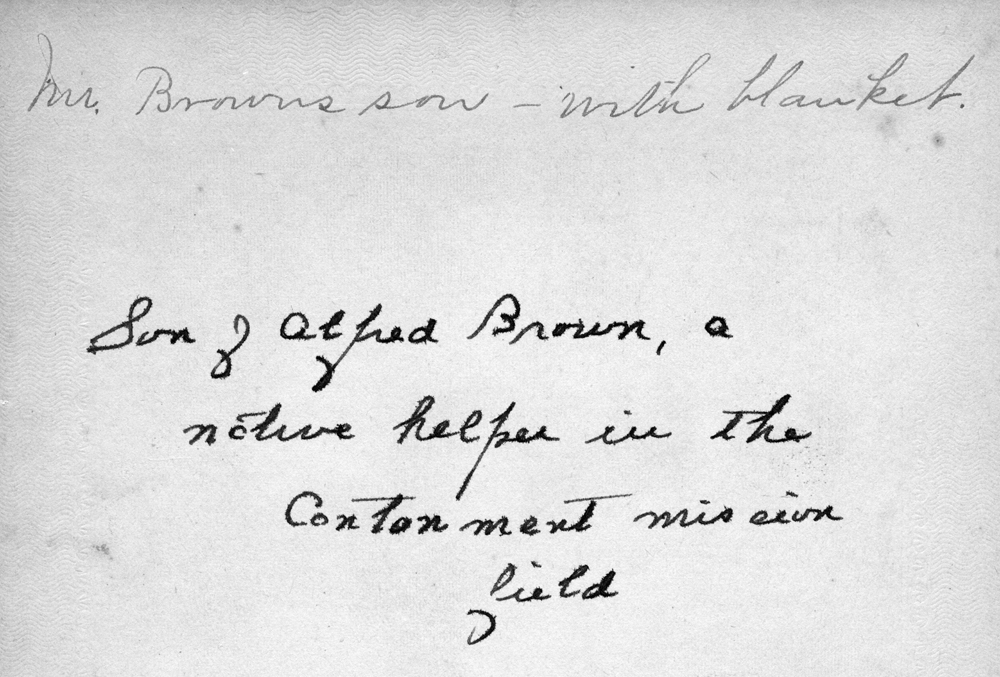 Mr. Browns son - with blanket.
Son of Alfred Brown, a
native helper in the
Contonment mission
field